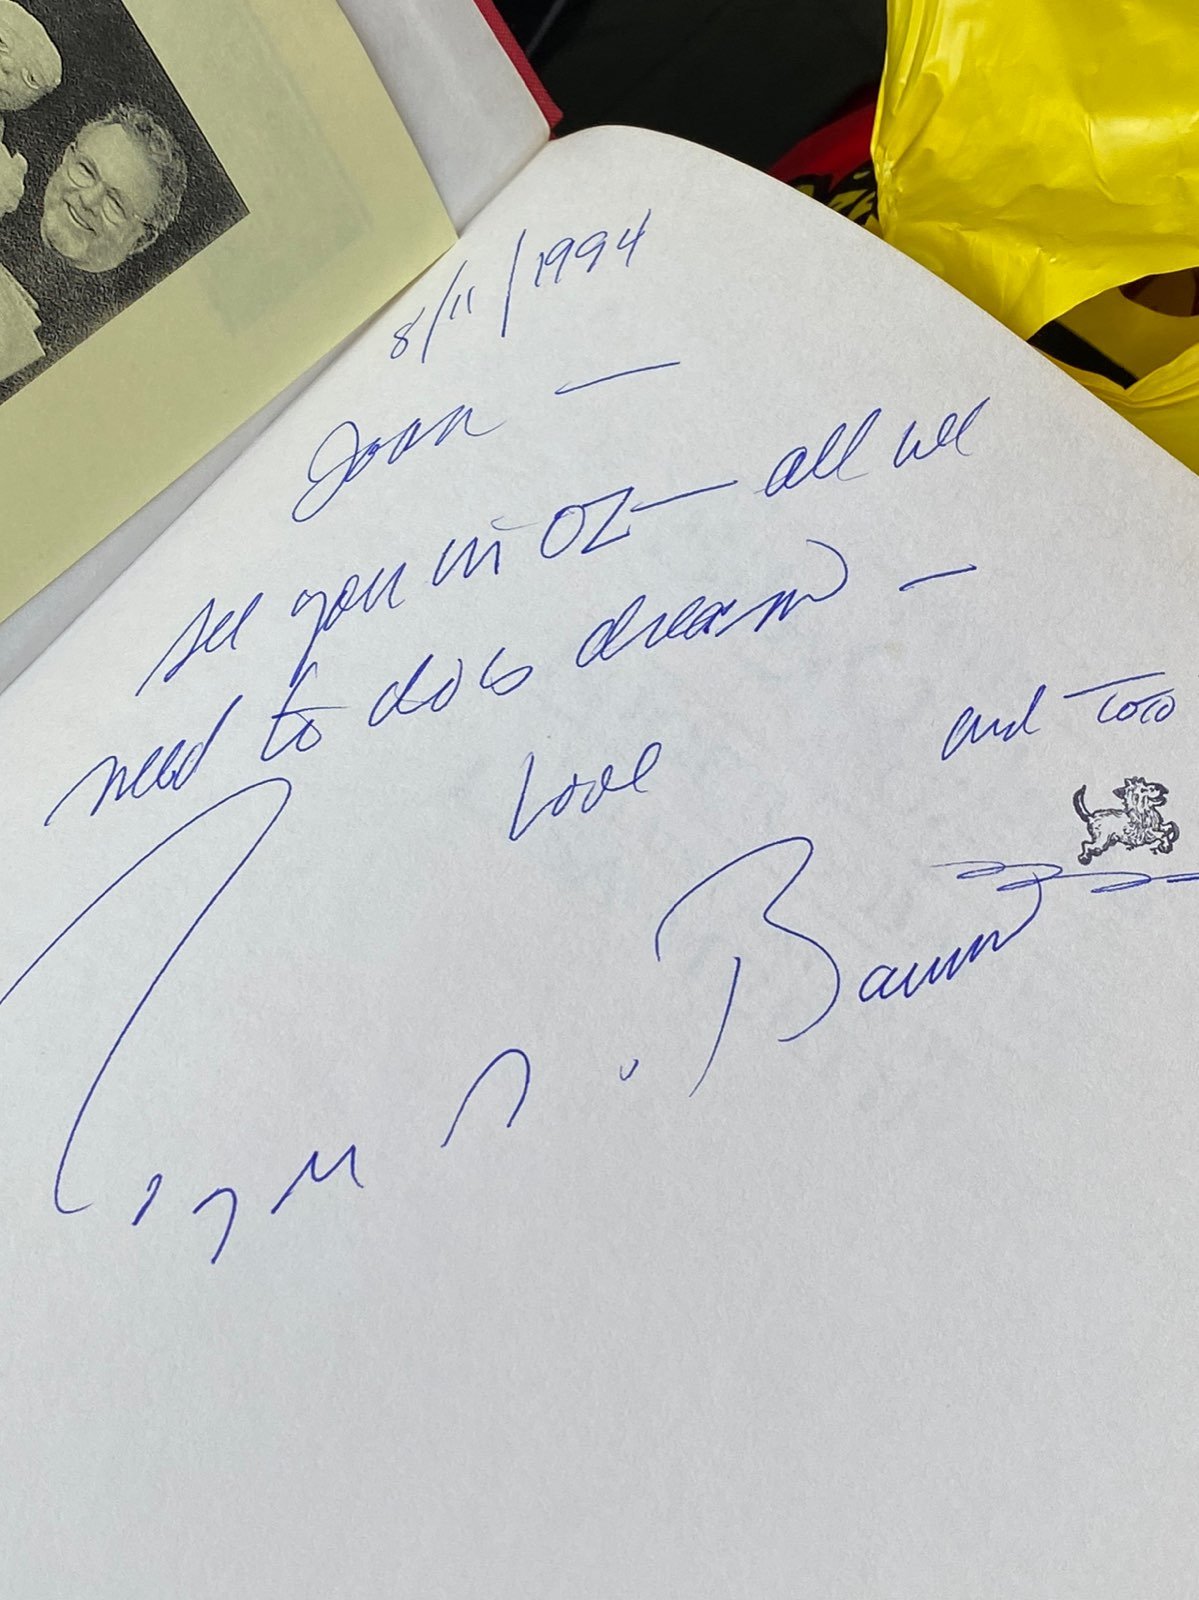 8/11/1994
Joan —
see you in OZ — all we
need to do is dream —
Love
and Toto
Baum